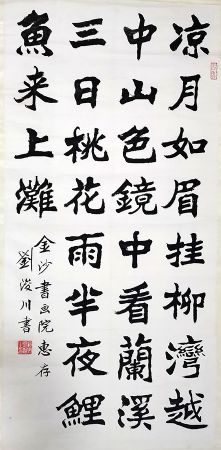 凉月如眉挂柳灣越
中山色鏡中看蘭溪
三日桃花雨半夜鯉
魚来上灘
金沙書画院惠存
劉俊川書